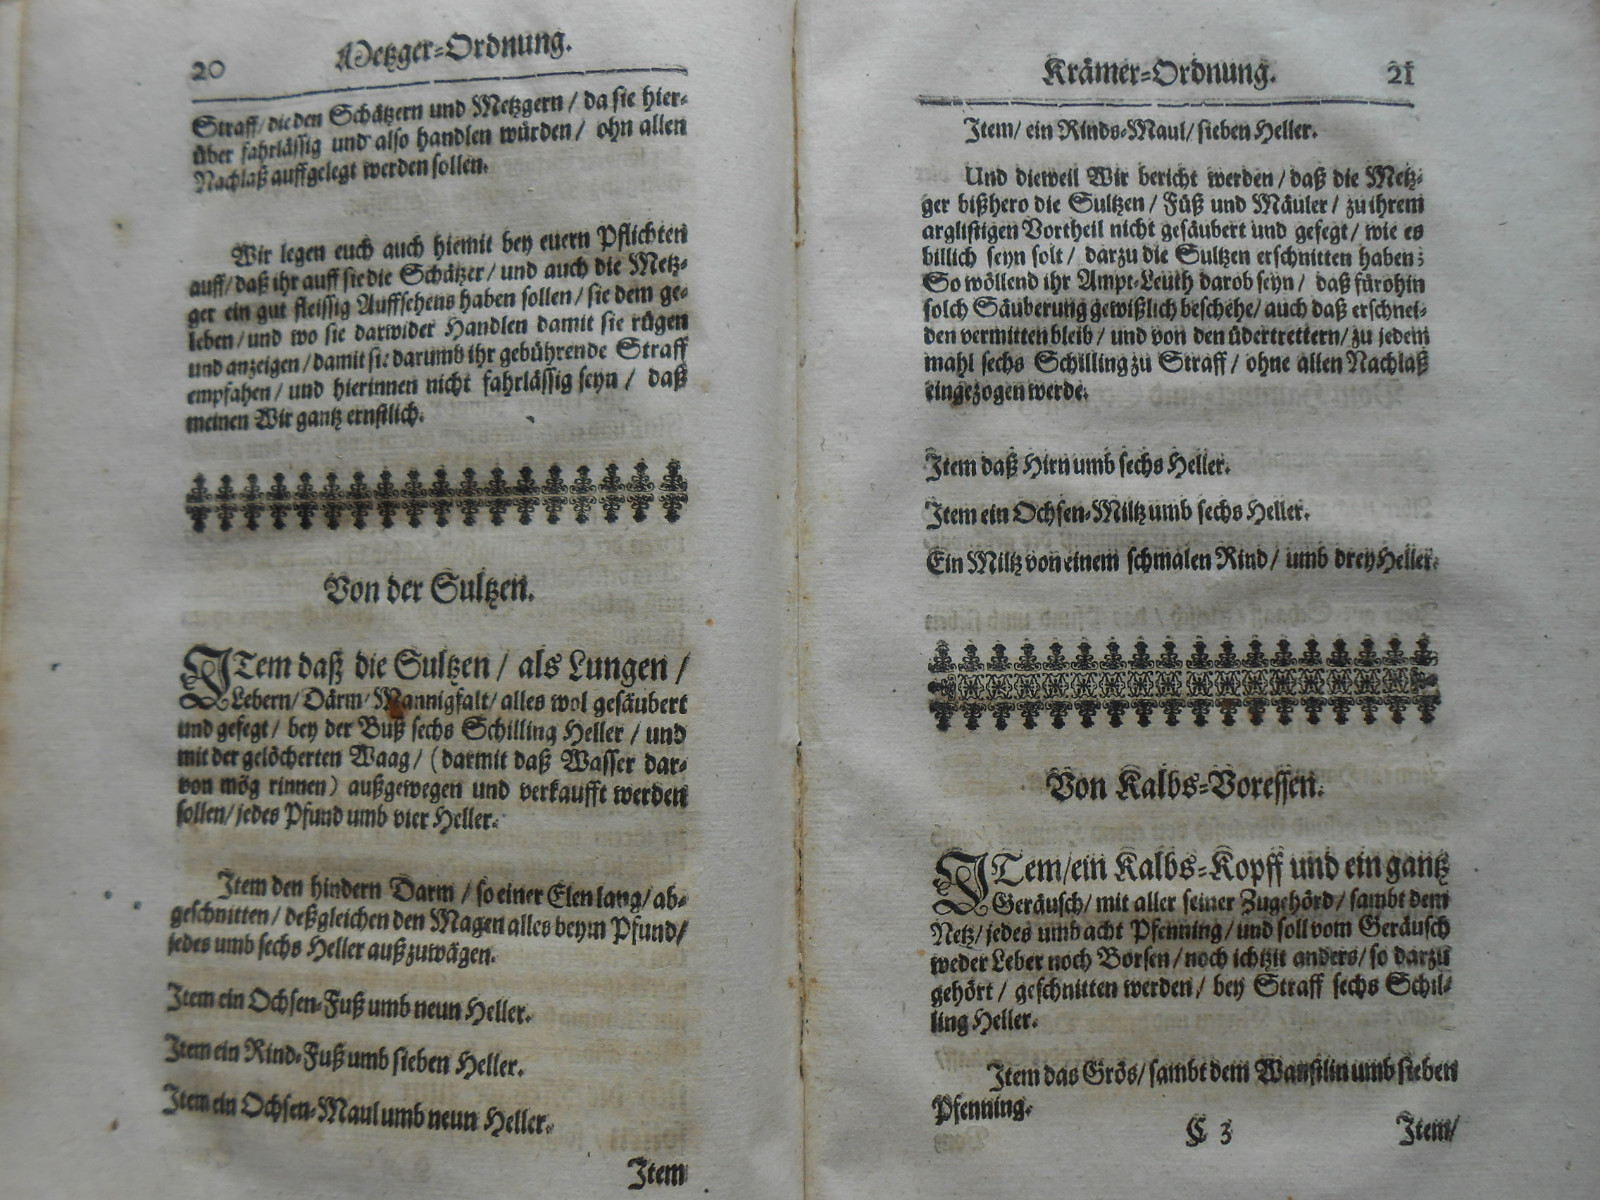 20 Metzger-Ordnung.
Straff/ die den Schätzern und Metzgern / da sie hier-
über fahrlässig und also handlen würden / ohn allen
Nachlaß auffgelegt werden sollen.
Wir legen euch auch hiemit bey euern Pflichten
auff/ daß ihr auff sie die Schätzer/ und auch die Metz-
ger ein gut fleissig Auffsehens haben sollen/ sie dem ge-
leben/ und wo sie darwider Handlen damit sie rügen
und anzeigen/ damit sie darumb ihr gebührende Straff
empfahen/ und hierinnen nicht fahrlässig seyn / daß
meinen Wir gantz ernstlich.
Von der Sultzen.
ITem daß die Sultzen / als Lungen /
Lebern/ Därm/ Mannigfalt/ alles wol gesäubert
und gefegt/ bey der Buß sechs Schilling Heller / und
mit der gelöcherten Waag/ (darmit daß Wasser dar-
von mög rinnen) außgewegen und verkaufft werden
sollen/ jedes Pfund umb vier Heller.
Item den hindern Darm / so einer Elen lang/ ab-
geschnitten/ deßgleichen den Magen alles beym Pfund/
jedes umb sechs Heller außzuwägen.
Item ein Ochsen-Fuß umb neun Heller.
Item ein Rind-Fuß umb sieben Heller.
Item ein Ochsen-Maul umb neun Heller.
Item
Krämer-Ordnung. 21
Item/ ein Rinds-Maul/ sieben Heller.
Und dieweil Wir bericht werden/ daß die Metz-
ger bißhero die Sultzen / Füß und Mäuler / zu ihrem
arglistigen Vortheil nicht gesäubert und gefegt/ wie es
billich seyn solt / darzu die Sultzen erschnitten haben;
So wöllend ihr Ampt-Leuth darob seyn/ daß fürohin
solch Säuberung gewißlich beschehe/ auch daß erschnei-
den vermitten bleib/ und von den übertrettern/ zu jedem
mahl sechs Schilling zu Straff / ohne allen Nachlaß
eingezogen werde.
Item daß Hirn umb sechs Heller.
Item ein Ochsen-Miltz umb sechs Heller.
Ein Miltz von einem schmalen Rind/ umb drey Heller.
Von Kalbs-Voressen.
ITem/ ein Kalbs-Kopff und ein gantz
Geräusch/ mit aller seiner Zugehörd/ sambt dem
Netz/ jedes umb acht Pfenning/ und soll vom Geräusch
weder Leber noch Borsen/ noch ichtzit anders/ so darzu
gehört/ geschnitten werden/ bey Straff sechs Schil-
ling Heller.
Item das Grös/ sambt dem Wanstlin umb sieben
Pfenning.
C 3 Item/